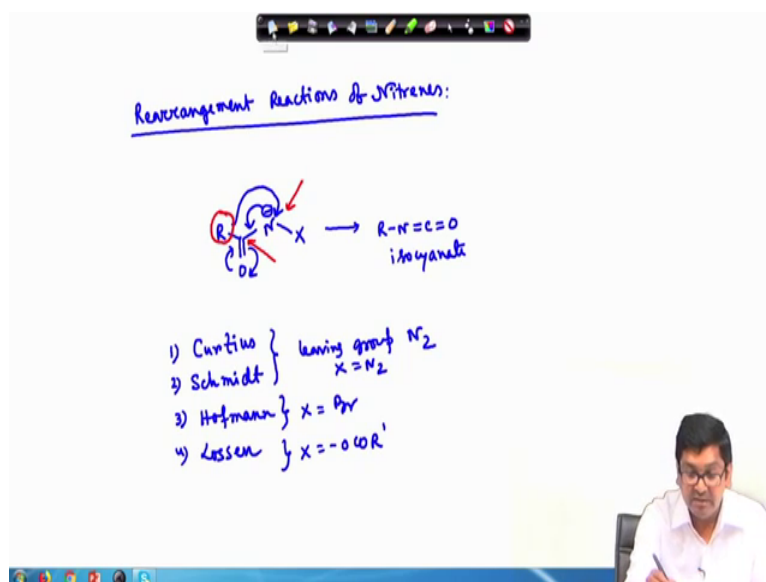 Rearrangement Reactions of Nitrenes:
R N ⊖ X O → R-N=C=O
isocyanate
1) Curtius } leaving group N2
2) Schmidt } X = N2
3) Hofmann } X = Br
4) Lossen } X = -OCOR'